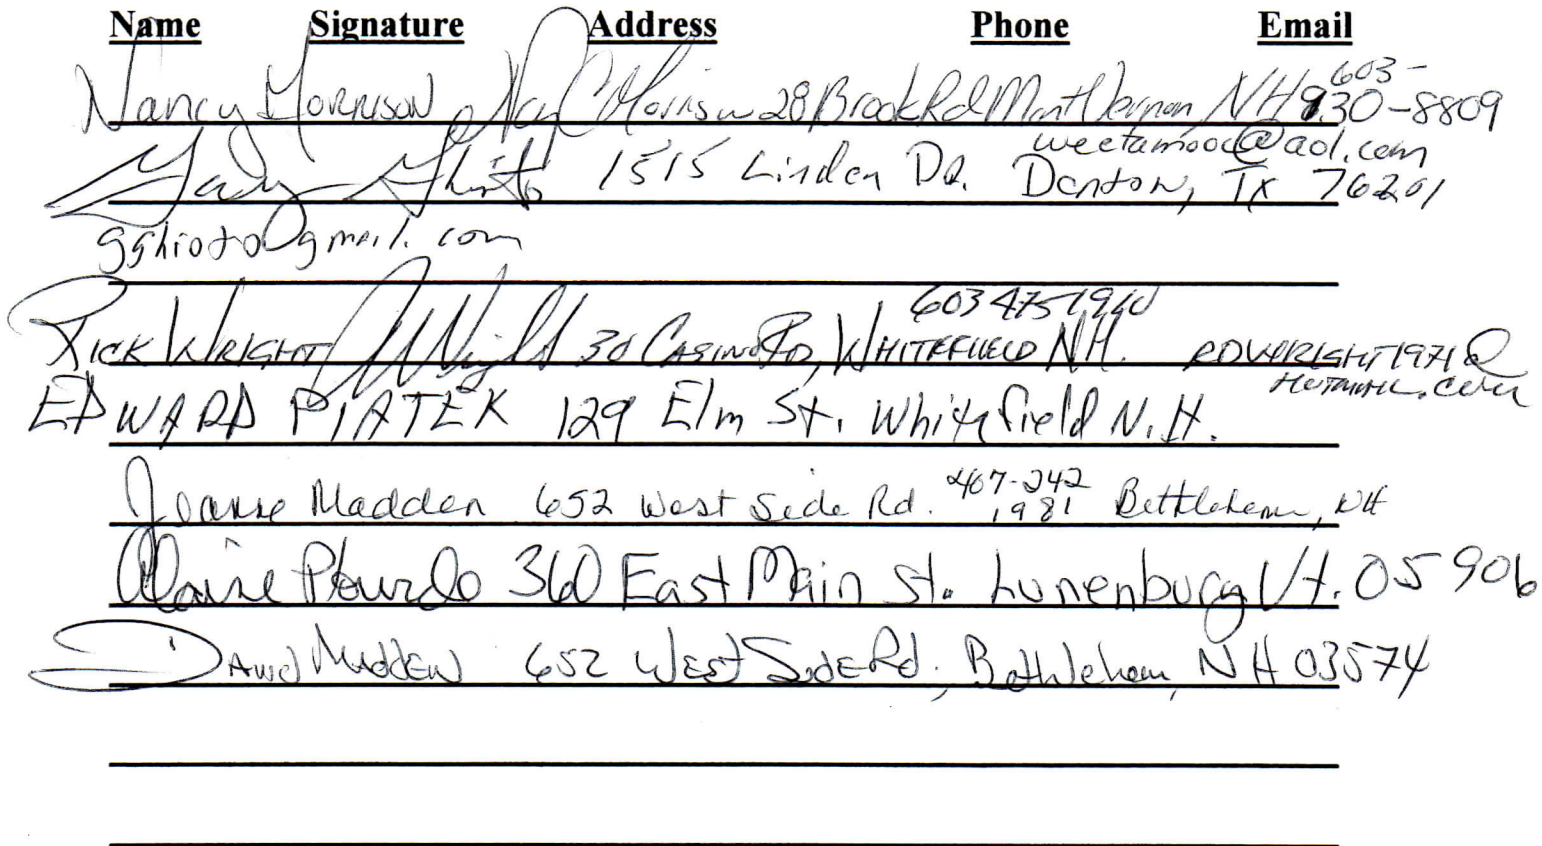 Name Signature Address Phone Email
Nancy Morrison Nancy C Morrison 28 Brook Rd Mont Vernon NH 603-930-8809
weetamooc@aol.com
Gary Ghioto 1515 Linden Dr. Denton, TX 76201
gghioto@gmail.com
Rick Wright 30 Casino Rd, Whitefield NH. 603 475 1960 RDWRIGHT1971@hotmail.com
EDWARD PIATEK 129 Elm St. Whitefield N.H.
Jeanne Madden 652 West Side Rd. 467-242-1981 Bethlehem, NH
360 East Main St. Lunenburg Vt. 05906
David Madden 652 West Side Rd, Bethlehem, NH 03574